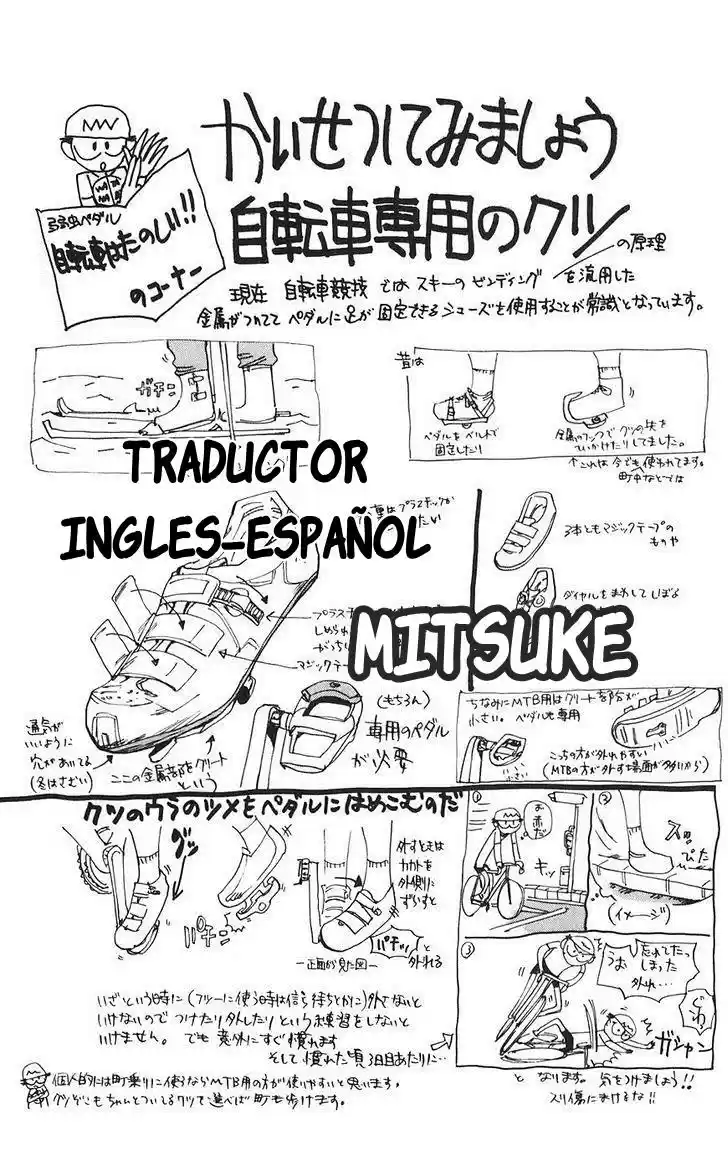 かいせつしてみましょう
弱虫ペダル
自転車はたのしい!!
のコーナー
自転車専用のクツ
現在 自転車競技ではスキーのビンディングの原理を流用した
金属がついててペダルに足が固定できるシューズを使用することが常識となっています。
ガチン
昔は
ペダルをベルトで
固定したり
金属のフックでクツの先を
ひっかけたりしてました。
↑これは今でも使われてます。
町中などでは
TRADUCTOR
INGLES-ESPAÑOL
MITSUKE
3本ともマジックテープの
ものや
ダイヤルをまわしてしぼる
プラス
しめられ
がっちり
マジックテー
通気が
いいように
穴があいてる
(冬はさむい)
ここの金属部をクリート
という
(もちろん)
専用のペダル
が必要
ちなみにMTB用はクリート部分が
小さい。ペダルも専用
小さい
こっちの方が外れやすい
(MTBの方が外す場面が多いから)
クツのウラのツメをペダルにはめこむのだ
グッ
パチン
外すときは
カカトを
外側に
ずらすと
パチッと
外れる
ー正面から見た図ー
①
お
赤だ
キッ
②
スッ
ぴたっ
(イメージ)
③
忘れてたっ
しまった
外れ…
うお
ガシャン
いざという時に(フツーに使う時は信号待ちとかに)外さないと
いけないので つけたり外したりという練習をしないと
いけません。でも意外にすぐ慣れます
そして慣れた頃3日目あたりに…
となります。気をつけましょう!!
スリ傷にまけるな!!
個人的には町乗りに使うならMTB用の方が使いやすいと思います。
クツぞこもちゃんとついてるクツで選べば町も歩けます。